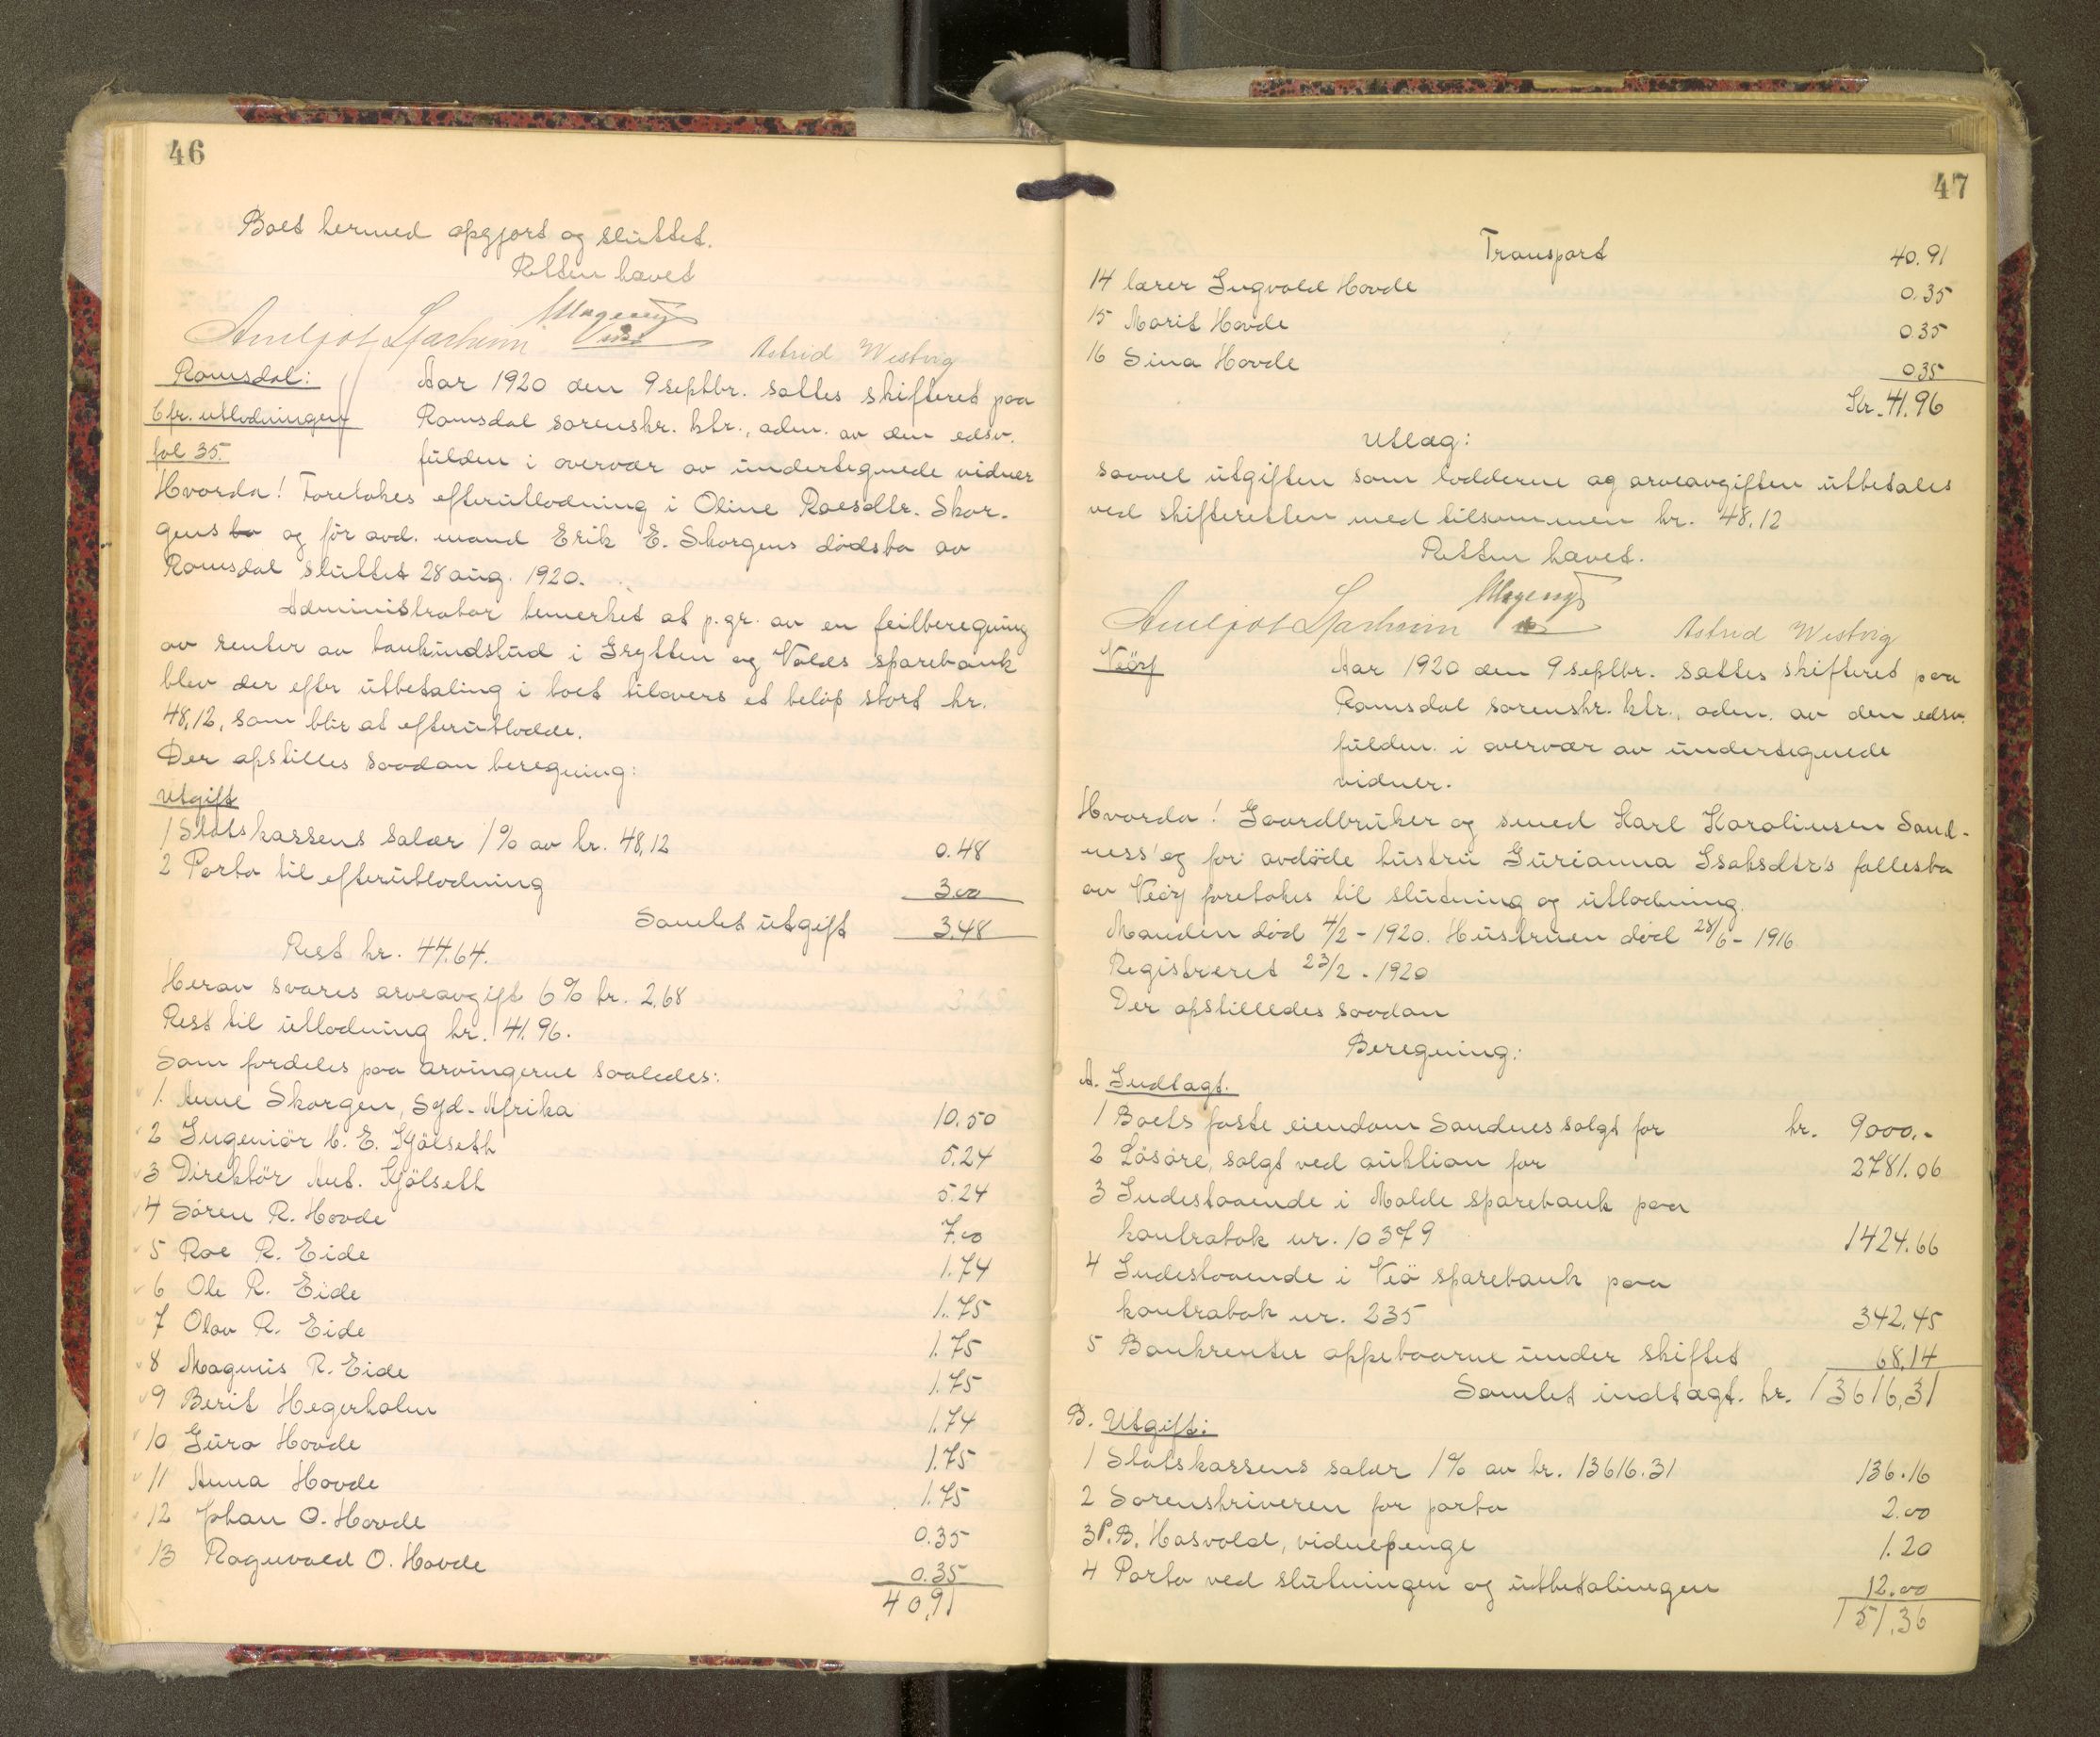 46
Boet hermed opgjort og sluttet.
Retten hævet
Astrid Westvig
Romsdal:
Cfr. utlodningen
fol 35.
Aar 1920 den 9 septbr. sattes skifteret paa
Romsdal sorenskr. ktr., adm. av den edsv.
fuldm i overvær av undertegnede vidner
Hvorda! Foretokes efterutlodning i Oline Roesdtr. Skor-
gens bo og før avd. mand Erik E. Skorgens dødsbo av
Romsdal sluttet 28 aug. 1920.
Administrator bemerket at p.gr. av en feilberegning
av renter av bankindskud i Grytten og Volds sparebank
blev der efter utbetaling i boet tilovers et beløp stort kr.
48,12, som blir at efterutlodde.
Der opstilles saadan beregning:
Utgift
1 Statskassens salær 1% av kr. 48,12 0.48
2 Porto til efterutlodning 3.00
Samlet utgift 3.48
Rest kr. 44.64.
Herav svares arveavgift 6% kr. 2.68
Rest til utlodning kr. 41.96.
Som fordeles paa arvingerne saaledes:
1. Anne Skorgen, Syd-Afrika 10.50
2 Ingeniør C. E. Kjølseth 5.24
3 Direktør Ant. Kjölseth 5.24
4 Søren R. Hovde 7.00
5 Roe R. Eide 1.74
6 Ole R. Eide 1.75
7 Olav R. Eide 1.75
8 Magnus R. Eide 1.75
9 Berit Hegerholm 1.74
10 Guro Hovde 1.75
11 Anna Hovde 1.75
12 Johan O. Hovde 0.35
13 Ragnvald O. Hovde 0.35
40,91
47
Transport 40.91
14 lærer Ingvald Hovde 0.35
15 Marit Hovde 0.35
16 Sina Hovde 0.35
Kr. 41.96
Utlæg:
saavel utgiften som lodderne og arveavgiften utbetales
ved skifteretten med tilsammen kr. 48.12
Retten hævet.
Astrid Westvig
Veøy
Aar 1920 den 9 septbr. sattes skifteret paa
Romsdal sorenskr. ktr., adm. av den edsv.
fuldm. i overvær av undertegnede
vidner.
Hvorda! Gaardbruker og smed Karl Karolinsen Sand-
ness' og før avdøde hustru Gurianna Isaksdtr's fællesbo
av Veøy foretokes til slutning og utlodning.
Manden død 4/2 - 1920. Hustruen død 28/6 - 1916
Registreret 23/2 - 1920
Der opstilledes saadan
Beregning:
A. Indtægt.
1 Boets faste eiendom Sandnes solgt for kr. 9000.-
2 Løsøre, solgt ved auktion for 2781.06
3 Indestaaende i Molde sparebank paa
kontrabok nr. 10379 1424.66
4 Indestaaende i Veö sparebank paa
kontrabok nr. 235 342.45
5 Bankrenter oppebaarne under skiftet 68.14
Samlet indtægt. kr. 13616,31
B. Utgift:
1 Statskassens salær 1% av kr. 13616.31 136.16
2 Sorenskriveren for porto 2.00
3 P. B. Hasvold, vidnepenge 1.20
4 Porto ved slutningen og utbetalingen 12.00
151.36